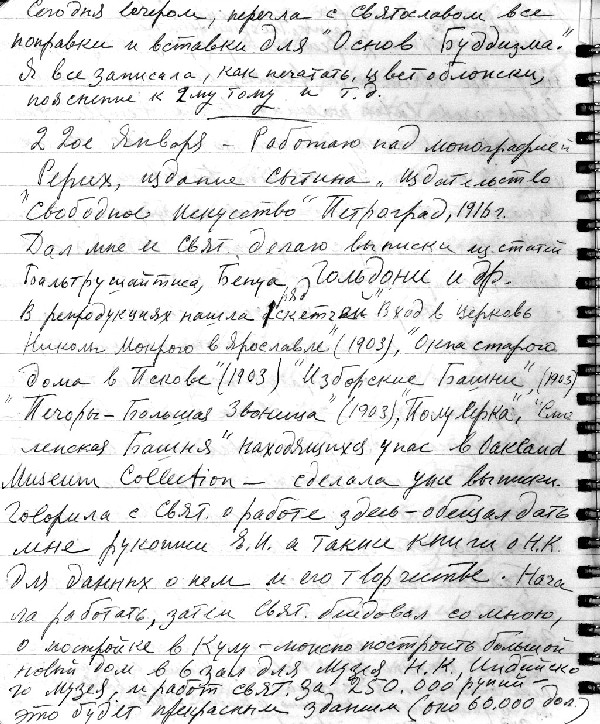 Сегодня вечером, перечла с Святославом все
поправки и вставки для "Основ Буддизма."
Я все записала, как печатать, цвет обложки,
пояснение к 2му тому и т.д.
22ое Января – Работаю над монографией
Рерих, издание Сытина, издательство
"Свободное Искусство" Петроград, 1916 г.
Дал мне ее Свят. делаю выписки из статей
Балтрушайтиса, Бенуа, Гольдони и др.
В репродукциях нашла ряд скетчей "Вход в Церковь
Николы Мокрого в Ярославле" (1903), "Окна старого
дома в Пскове" (1903) "Изборские Башни", (1903)
"Печоры – Большая Звонница" (1903), "Полуцерка", "Смо
ленская Башня" находящихся у нас в Oakland
Museum Collection – сделала уже выписки.
Говорила с Свят. о работе здесь – обещал дать
мне рукописи Е.И. а также книги о Н.К.
для данных о нем и его творчестве. Нача
ла работать, затем Свят. беседовал со мною,
о постройке в Кулу – можно построить большой
новый дом в 6 зал для Музея Н.К., Индийско
го музея, и работ Свят. за 250.000 рупий –
это будет прекрасным зданием (око 60.000 дол.)